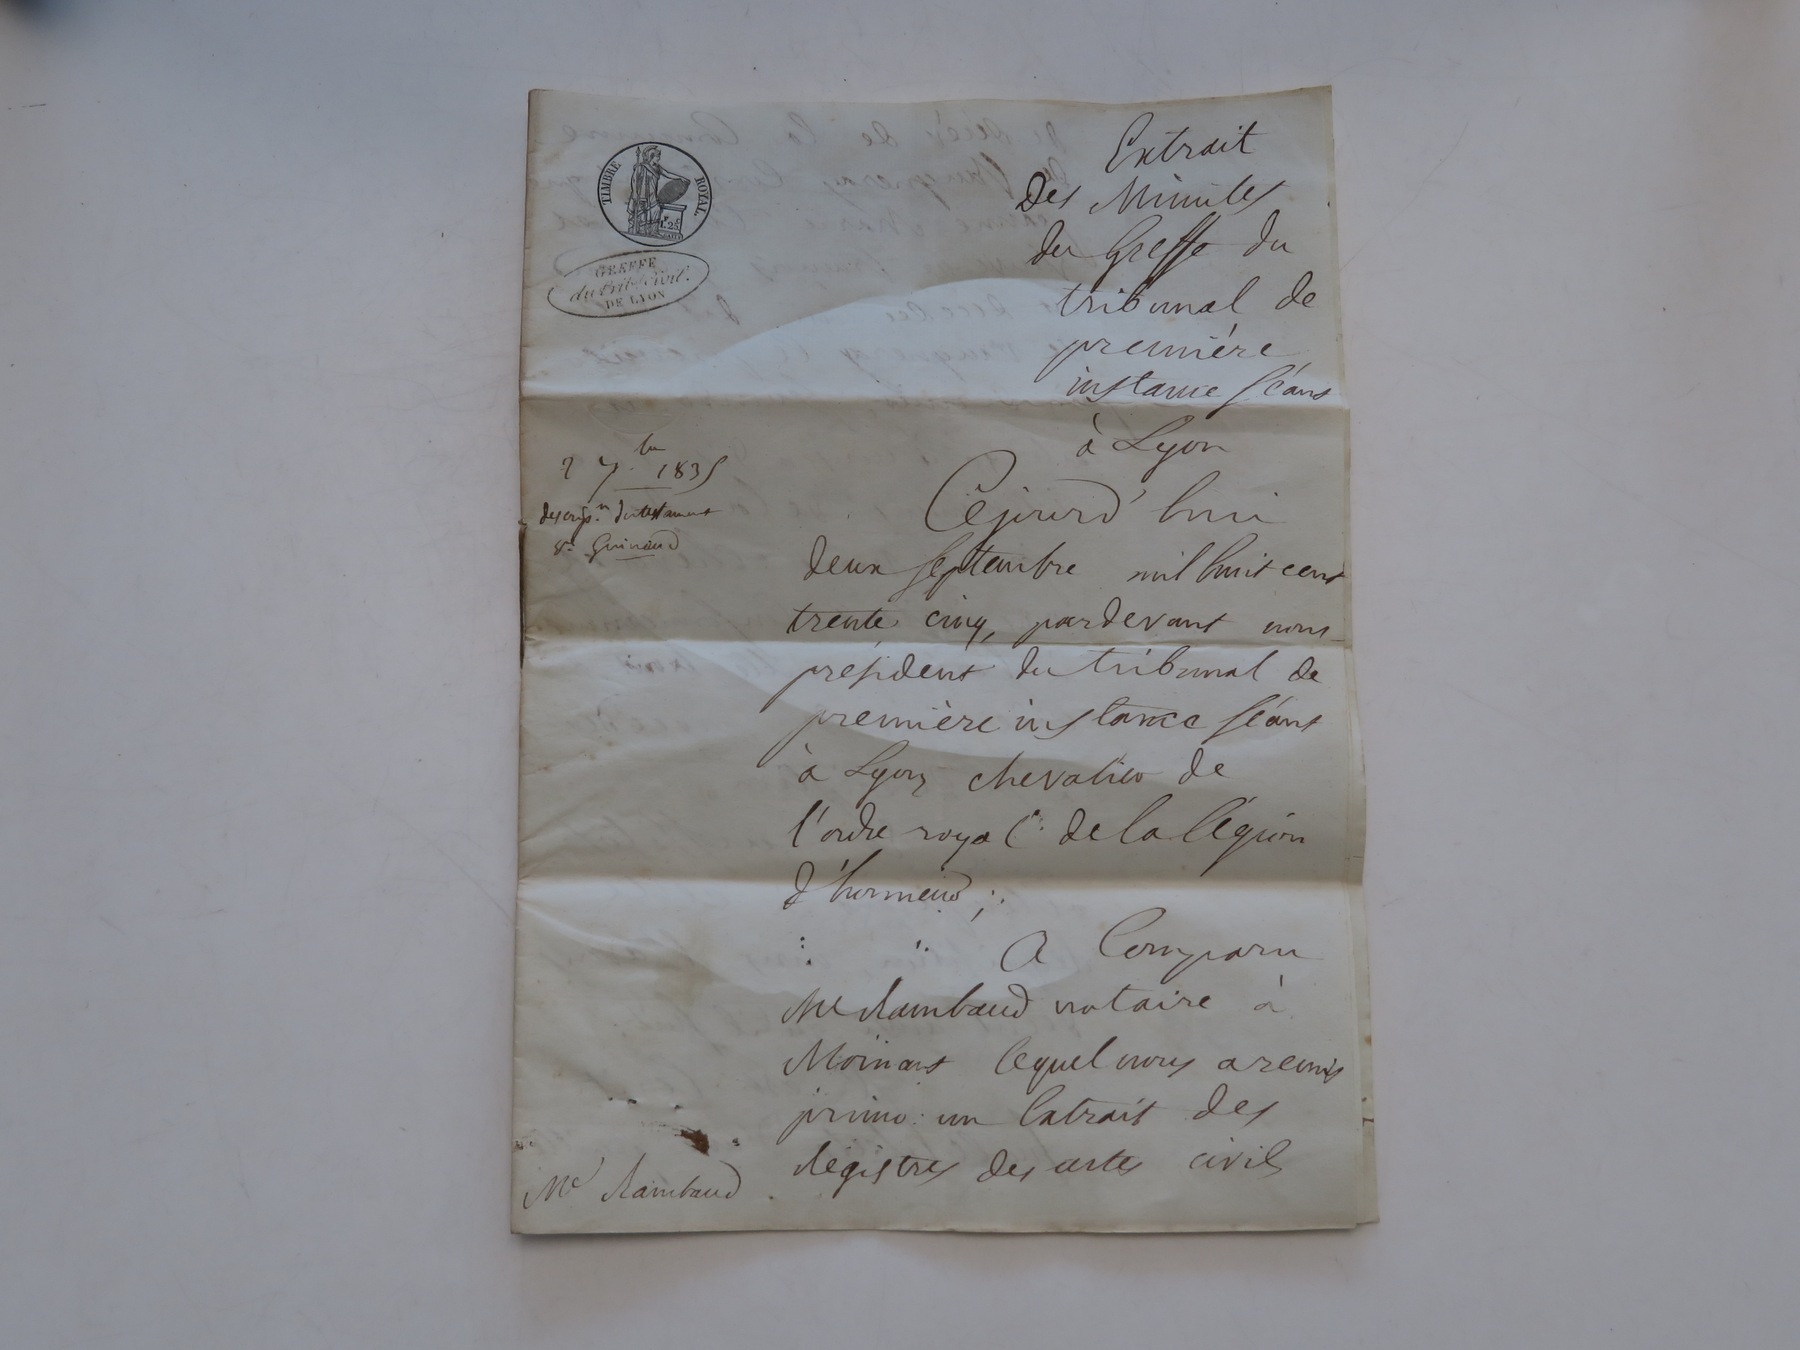 TIMBRE ROYAL.
1.f 25c
GREFFE
du trib.l Civil.
DE LYON
Extrait
Des Minutes
du Greffe du
tribunal de
première
instance séant
à Lyon
2 7.bre 1835
descrip.n du testament
Sr. Guinand
Cejourd'hui
deux septembre mil huit cent
trente cinq, pardevant nous
président du tribunal de
première instance séant
à Lyon chevalier de
l'ordre royal de la légion
d'honneur ;
A Comparu
Me Rambaud notaire à
Mornant lequel nous a remis
primo: un Extrait des
Régistres des actes civils
Me Rambaud